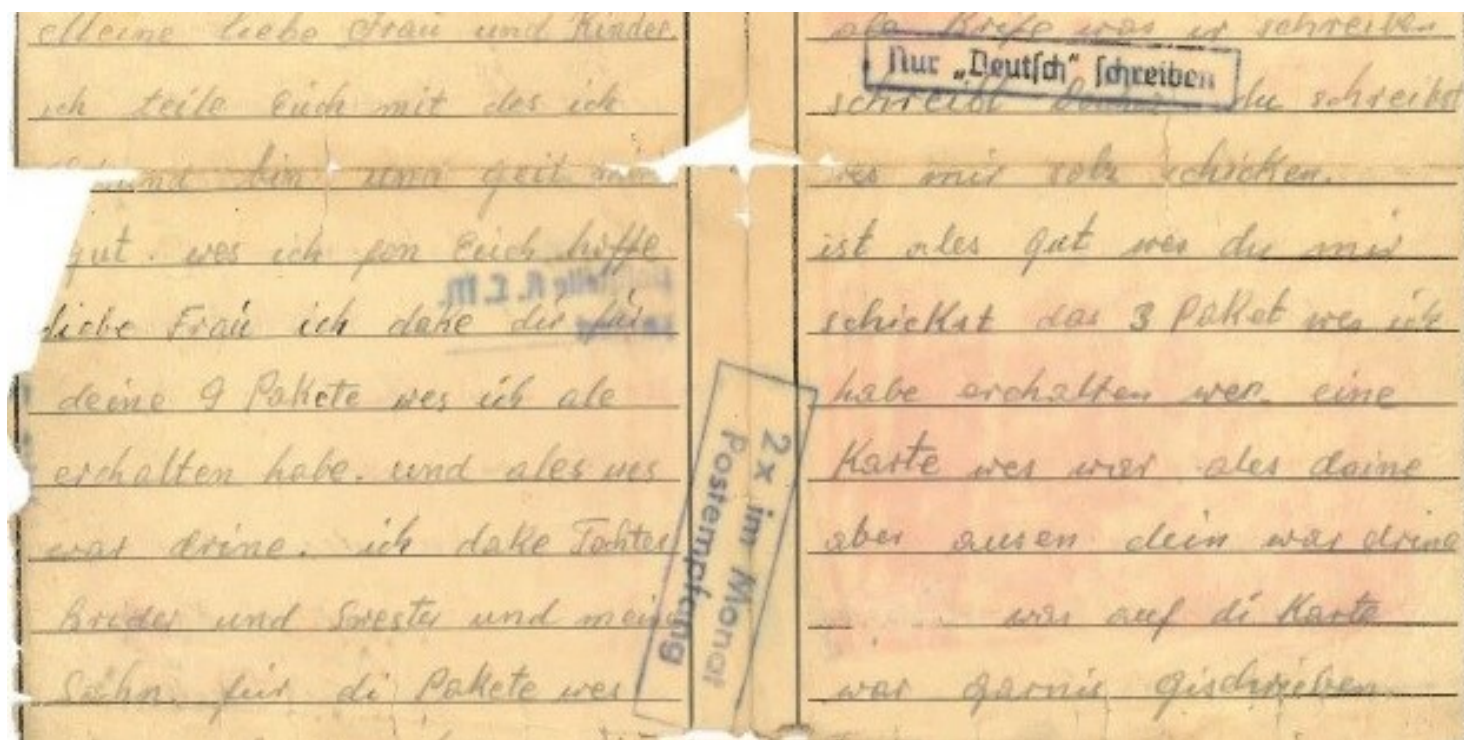 Meine liebe Frau und Kinder.
ich teile Euch mit des ich
bin und geit mir
gut. wes ich fon Euch hoffe
liebe Frau ich dake dir für
deine 9 Pakete wes ich ale
erchalten habe. und ales wes
war drine. ich dake Tochter
Brider und Swester und mein
Sohn. für di Pakete wes
2x im Monat
Postempfang
ale Brife was ir schreiben
Nur „Deutsch" schreiben
schreibt du schreibst
mir schicken.
ist ales gut wes du mir
schickst das 3 Paket wes ich
habe erchalten wer eine
Karte wes war ales daine
aber ausen dein war drine
was auf di Karte
war garnis gischrieben.